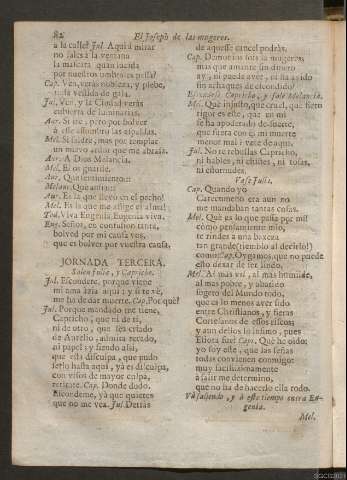 82
El Joseph de las mugeres.
a la calle? Jul. Aqui à mirar
no sales à la ventana
la mascara quan lucida
por nuestros umbrales passa?
Cap. Ven, veràs nobleza, y plebe,
toda vestida de gala.
Jul. Ven, y la Ciudad veràs
cubierta de luminarias.
Aur. Si iré, pero por bolver
à esse assombro las espaldas.
Mel. Si iré, mas por templar
un nuevo ardor que me abrasa.
Aur. A Dios Melancia.
Mel. El os guarde.
Aur. Què sentimiento!
Melan. Què ansia!
Aur. Es la que llevo en el pecho!
Mel. Es la que me aflige el alma!
Tod. Viva Eugenia, Eugenia viva.
Eug. Señor, en confusion tanta,
bolved por mi causa vos,
que es bolver por vuestra causa.
JORNADA TERCERA.
Salen Julia, y Capricho.
Jul. Escondete, porque viene
mi ama àzia aqui; y si te vè,
me ha de dar muerte. Cap. Por què?
Jul. Porque mandado me tiene,
Capricho, que ni de ti,
ni de otro, que sea criado
de Aurelio, admita recado,
ni papel; y siendo assi,
que esta disculpa, que pudo
serlo hasta aqui, yà es disculpa,
con visos de mayor culpa,
retirate. Cap. Donde dudo.
Escondeme, yà que quieres
que no me vea. Jul. Detràs
de aquesse cancel podràs.
Cap. Demonios sois las mugeres,
mas que amante sin dinero
ay, ni puede aver, ni ha avido
sin achaques de escondido?
Escondese Capricho, y sale Melancia.
Mel. Què injusto, que cruel, què fiero
rigor es este, que en mi
se ha apoderado de suerte,
que fuera con èl mi muerte
menor mal! vete de aqui.
Jul. No te rebullas Capricho,
ni hables, ni chistes, ni tosas,
ni estornudes.
Vase Julia.
Cap. Quando yo
me mandaban tantas cosas.
Mel. Què es lo que passa por mi!
còmo pensamiento mio,
te rindes a una baxeza
tan grande (tiemblo al decirlo!)
como: Cap. Oygamos, que no puede
esto dexar de ser lindo.
Mel. Al mas vil, al mas humilde,
al mas pobre, y abatido
sugeto del Mundo todo,
que es lo menos aver sido
entre Christianos, y fieras
Cortesanos de essos riscos;
y aun dellos lo infimo, pues
Eliota fue! Cap. Què he oido;
yo soy este, que las señas
todas convienen conmigo:
muy facilissimamente
à salir me determino,
que no ha de hacerlo ella todo.
Và saliendo, y à este tiempo entra Eu-
genia.
Mel.